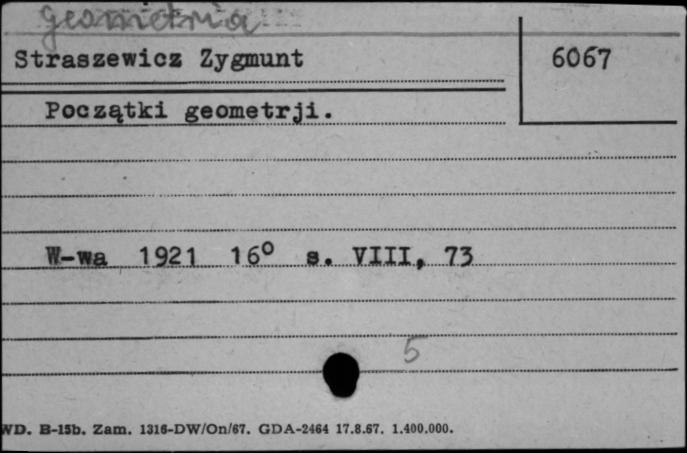 geometria
Straszewicz Zygmunt 6067
Początki geometrji.
W-wa 1921 16° s. VIII, 73
5
WD. B-15b. Zam. 1316-DW/On/67. GDA-2464 17.8.67. 1.400.000.